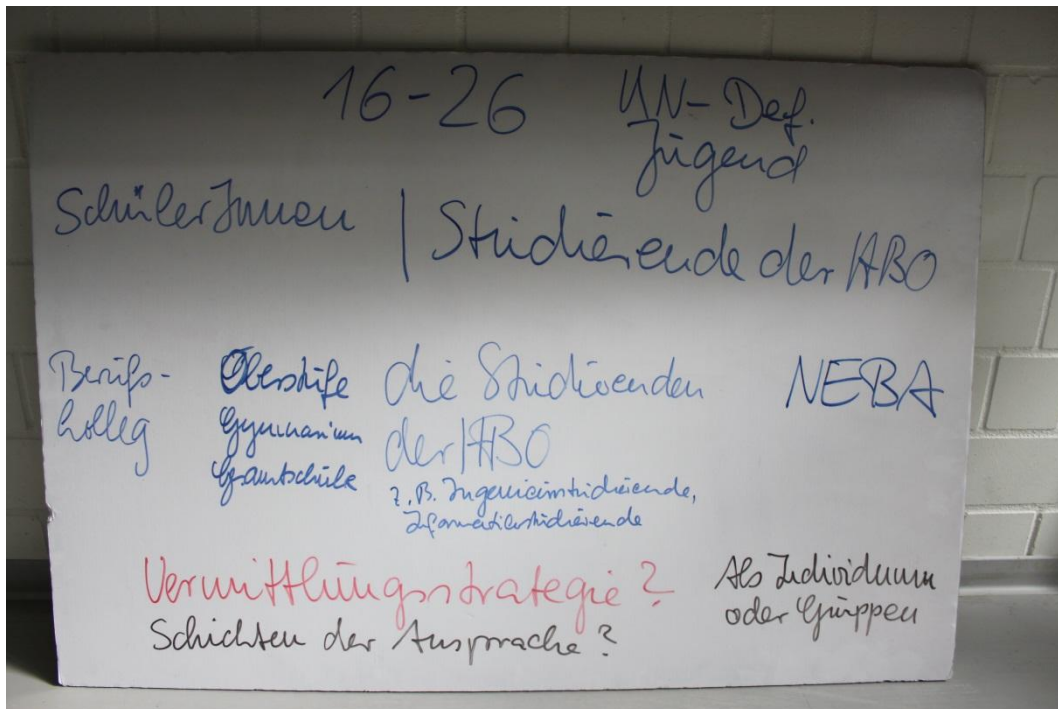 16-26
UN-Def.
Jugend
SchülerInnen | Studierende der HBO
Berufs-
kolleg
Oberstufe
Gymnasium
Gesamtschule
die Studierenden
der HBO
z.B. Ingenieurstudierende,
Informatikstudierende
NEBA
Vermittlungsstrategie?
Schichten der Ansprache?
Als Individuum
oder Gruppen